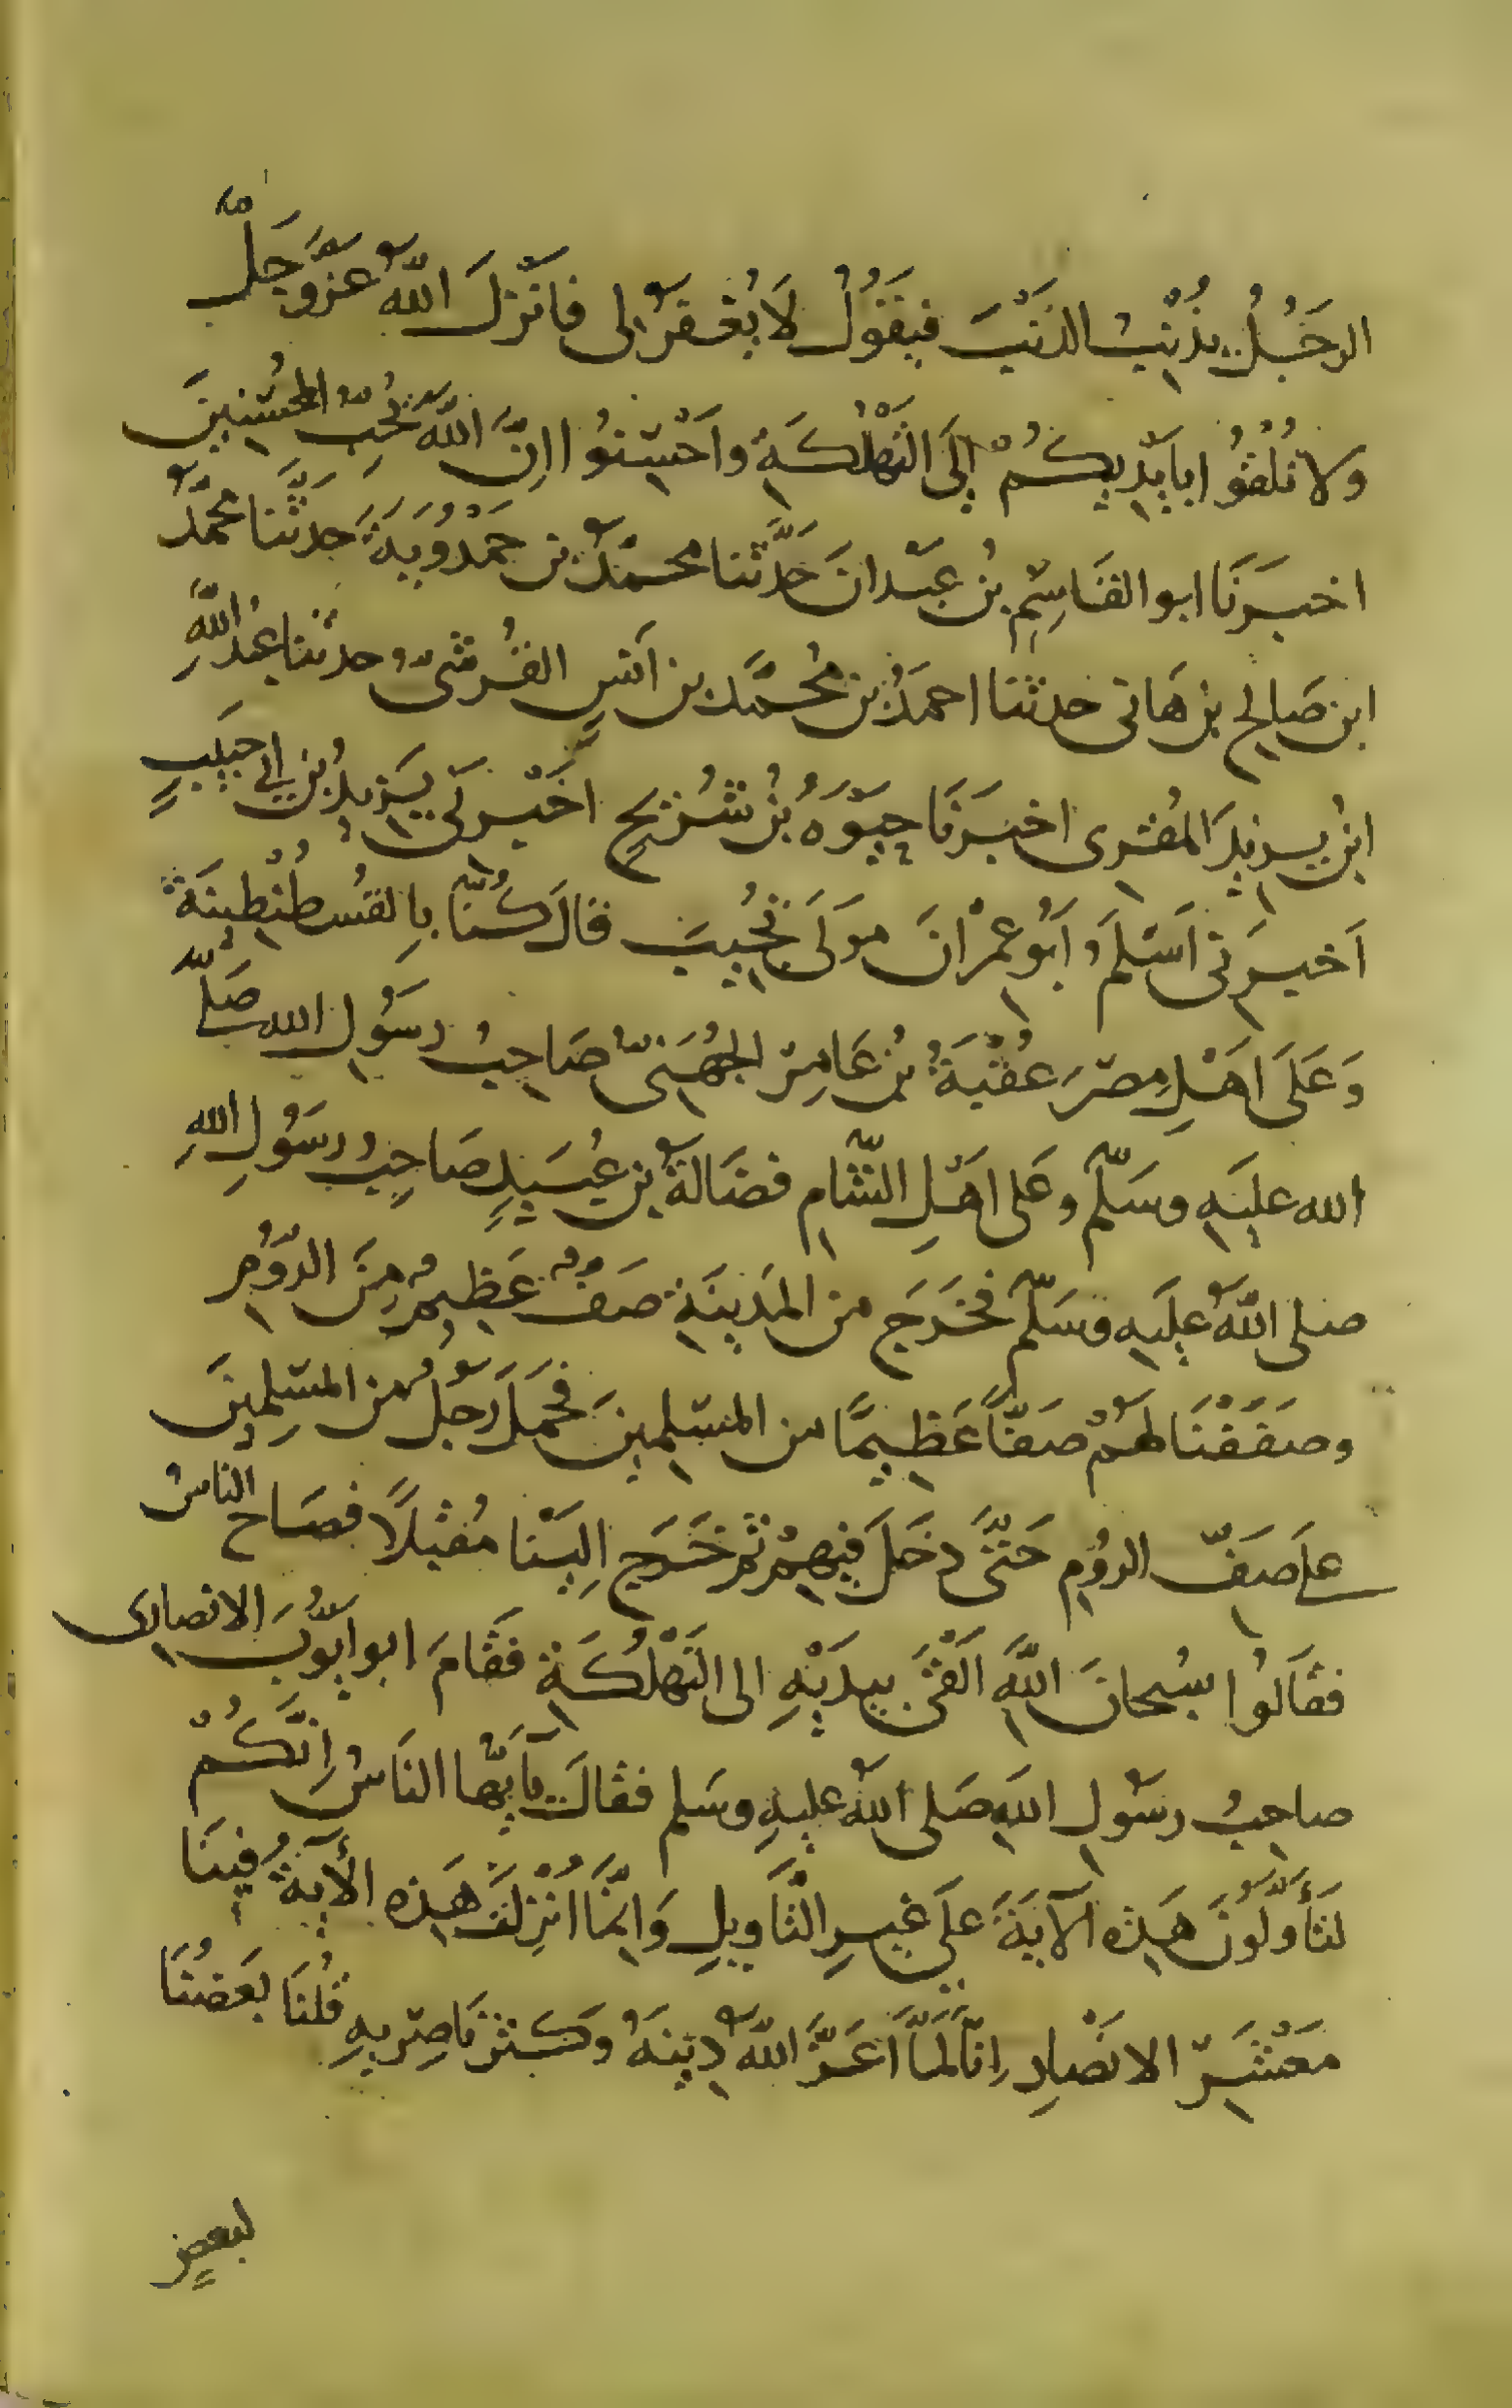 الرَجُلُ يُذْنِبُ الذَنْبَ فَيَقُولُ لَا يُغْفَرُ لِى فَانْزَلَ اللَّهُ عَزَّوَجَلَّ
وَلا تُلْقُوا بِاَيْدِيكُمْ اِلَى التَهْلُكَةِ وَاَحْسِنُوا اِنَّ اللَّهَ يُحِبُّ المُحْسِنِينَ
اخبَرَنَا ابو القَاسِمِ بْنُ عَبْدانَ حَدَّثَنا محمدُ بن حَمْدُوَيَةَ حَدَثَنَا محمَّدُ
ابن صَالِحِ بن هَانى حَدثنا احمدُ بن مُحمَّد بن اَنَسٍ القُرَشىُّ حدثنا عَبْدُ اللَّهِ
ابنُ يزيدَ المُقْرِى اخبَرَنَا حَيْوَةُ بْنُ شُرَيْحٍ اخْبَرَنى يَزيدُ بن ابى حَبيبٍ
اَخبرَنى اَسْلَمُ اَبُو عِمْرانَ مَولَى تُجِيبَ قالَ كُنَّا بِالقُسْطُنْطِينَةِ
وَعَلَى اَهْلِ مِصْرَ عُقْبَةُ بْنُ عَامِرٍ الجُهَنىُّ صَاحِبُ رسُولِ الله صَلَّى
الله عَلَيهِ وسَلَّمَ وعَلى اَهْلِ الشَّامِ فضَالَةُ بن عُبَيدٍ صَاحِبُ رسُولِ اللهِ
صلى اللَّهُ عليَهِ وسَلَّمَ فخَرَجَ من المَدِينَةِ صَفٌّ عَظِيمٌ مِنَ الرُّومِ
وصَفَفْنَا لَهُمْ صَفّاً عَظِيمًا من المسْلِمِينَ فَحَمَلَ رَجُلٌ من المسْلِمِينَ
على صَفِّ الرومِ حَتَّى دخَلَ فيهِمْ ثمَّ خَرَجَ اِلَيْنا مُقْبِلًا فصَاحَ الناسُ
فقالُوا سُبحانَ اللَّهِ اَلْقَى بِيدَيْهِ الى التَهْلُكَةِ فقَامَ ابو ايّوُبَ الانصارى
صاحِبُ رسُولِ اللهِ صَلى اللَّهُ عليهِ وسَلم فقالَ يآ اَيُّها الناسُ اِنَّكُمْ
لتَتَأَوَّلُونَ هَذِه الآيَةَ عَلَى غَيرِ التَأوِيلِ وَاِنَّما اُنْزِلَتْ هَذِه الأيَةُ فِينَا
مَعْشَرَ الانْصَارِ اِنّا لَمَّا اَعَزَّ اللَّهُ دِينَهُ وكَثَّرَ نَاصِرِيهِ قُلْنَا بَعْضُنَا
لبعضٍ